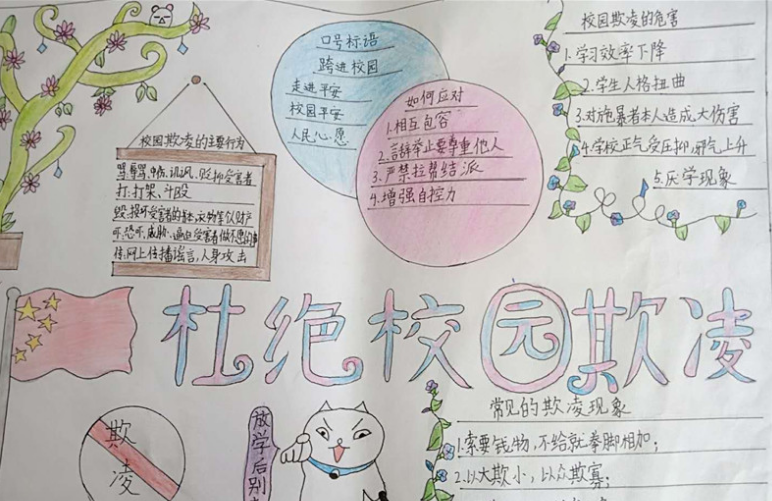 口号标语
跨进校园
走进平安
校园平安
人民心愿
如何应对
1.相互包容
2.言辞举止要尊重他人
3.严禁拉帮结派
4.增强自控力
校园欺凌的危害
1.学习效率下降
2.学生人格扭曲
3.对施暴者本人造成大伤害
4.学校正气受压抑,邪气上升
5.厌学现象
校园欺凌的主要行为
骂:辱骂,中伤,讥讽、贬抑受害者
打:打架、斗殴
毁:损坏受害者的书本,衣物等个人财产
吓:恐吓、威胁、逼迫受害者做不愿的事
传:网上传播谣言,人身攻击
杜绝校园欺凌
欺
凌
放学后别
常见的欺凌现象
1.索要钱物,不给就拳脚相加;
2.以大欺小,以众欺寡;